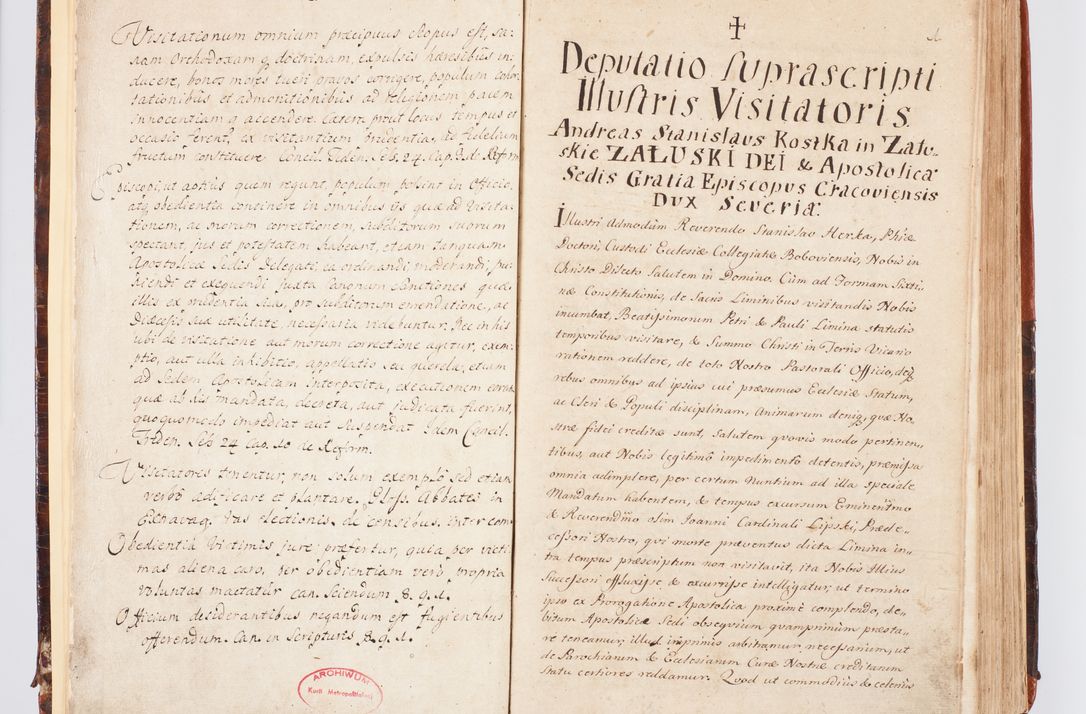 Visitationum omnium præcipuus Scopus est, sa-
nam Orthodoxam q doctrinam, expulsis hæresibus in-
ducere, bonos mores tueri pravos corrigere, populum cohor
tationibus et admonitionibus ad religionem, pacem
innocentiam q accendere. Cætera prout locus tempus et
occasio ferent, ex visitantium Prudentia, ad fidelium
fructum constituere Concil. Triden. Seß. 24. Cap. 3. de Reform
Episcopi, ut aptius quem regunt, populum possint in Officio,
atq obedientia continere in omnibus iis quæ ad Visita-
tionem, ac morum correctionem, subditorum suorum
spectant, jus et potestatem habeant, etiam tanquam
Apostolicæ Sedis Delegati, ea ordinandi moderandi, pu-
niendi et exequendi juxta Canonum Sanctiones quæ
illis ex prudentia sua, pro subditorum emendatione, ac
Diæcesis suæ utilitate, necessaria videbuntur. Nec in his
ubi de visitatione aut morum correctione agitur, exem-
ptio, aut ulla inhibitio, appellatio seu querela, etiam
ad Sedem Apostolicam Interposita, executionem eorum
quæ ab his mandata, decreta, aut judicata fuerint,
quoquomodo impediat aut Suspendat Idem Concil.
Triden. Seß 24 Cap. 10 de Reform.
Visitatores tenentur, non solum exemplo sed etiam
verbo ædificare et plantare. Gloss. Abbates in
Extravag. Vas electionis. de censibus. inter com
Obedientia Victimis jure præfertur, quia per victi
mas aliena caro, per obedientiam vero propria
voluntas mactatur can. Sciendum 8. q. 1.
Officium desiderantibus negandum est fugientibus
offerendum. Can. in Scripturis 8. q. 1.
ARCHIWUM
Kurii Metropolitalnej
1
Deputatio suprascripti
Illustris Visitatoris
Andreas Stanislaus Kostka in Zalu-
skie ZAŁUSKI DEI & Apostolicæ
Sedis Gratia Episcopus Cracoviensis
Dux Severiæ
Illustri Admodum Reverendo Stanislao Herka, Phiæ
Doctori, Custodi Ecclesiæ Collegiatæ Boboviensis, Nobis in
Christo Dilecto Salutem in Domino. Cum ad Formam Sixti-
næ Constitutionis, de Sacris Liminibus visitandis Nobis
incumbat, Beatissimorum Petri & Pauli Limina statutis
temporibus visitare, & Summo Christi in Terris Vicario
rationem reddere, de toto Nostro Pastorali Officio, deq
rebus omnibus ad ipsius cui præsumus Ecclesiæ Statum,
ac Cleri & Populi disciplinam, Animarum deniq quæ No-
stræ fidei creditæ sunt, Salutem quovis modo pertinen-
tibus, aut Nobis legitimo impedimento detentis, præmissa
omnia adimplere, per certum Nuntium ad illa speciale
Mandatum habentem, & tempus excursum Eminentmo
& Reverendmo olim Joanni Cardinali Lipski, Præde-
cessori Nostro, qvi morte præventus dicta Limina in-
tra tempus præscriptum non visitavit, ita Nobis Illius
Successori effluxisse & excurrisse intelligatur, ut termino
ipso ex Prorogatione Apostolica proxime complendo, de-
bitum Apostolicæ Sedi obseqvium qvamprimum præsta-
re teneamur, illud inprimis arbitramur necessarium, ut
de Parochiarum & Ecclesiarum Curæ Nostræ creditarum
Statu certiores reddamur. Qvod ut commodius & celerius